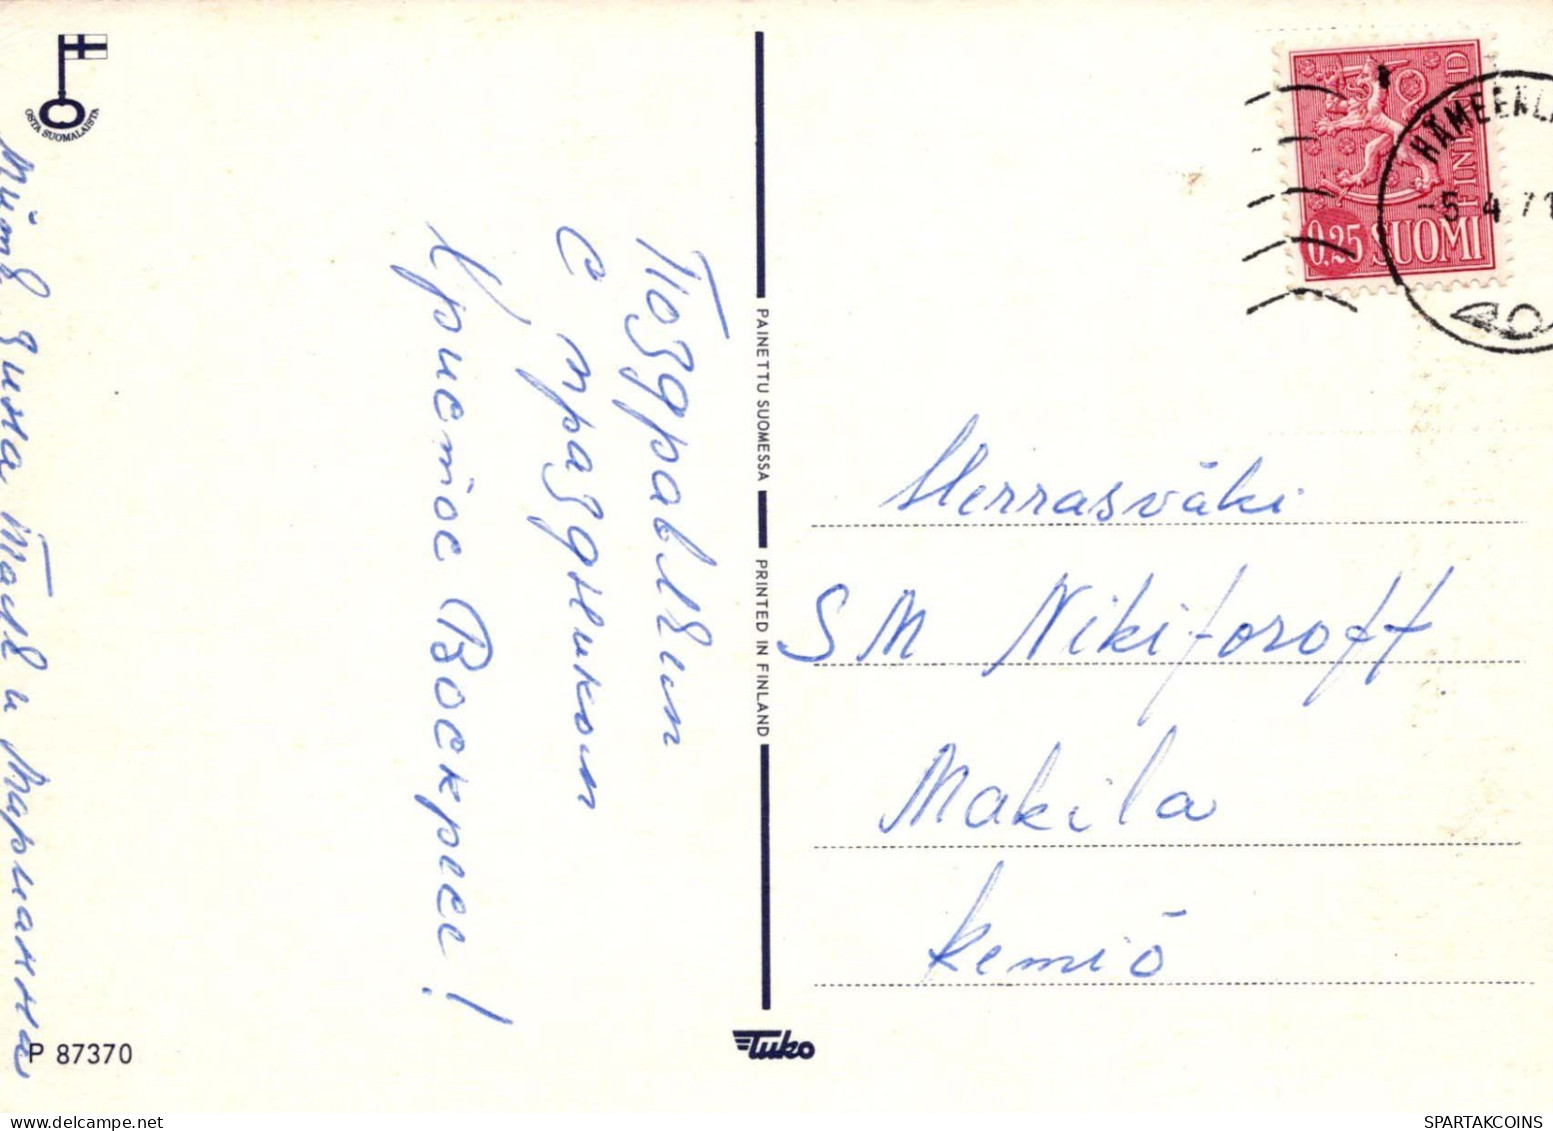 OSTA SUOMALAISTA
Поздравляем
с праздником
Христос Воскресе!
Зина Таня и Марианна
P 87370
PAINETTU SUOMESSA
PRINTED IN FINLAND
Tuko
FINLAND
0,25 SUOMI
HÄMEENLI
-5 4 71
Herrasväki
S M Nikiforoff
Makila
Kemiö
www.delcampe.net
SPARTAKCOINS